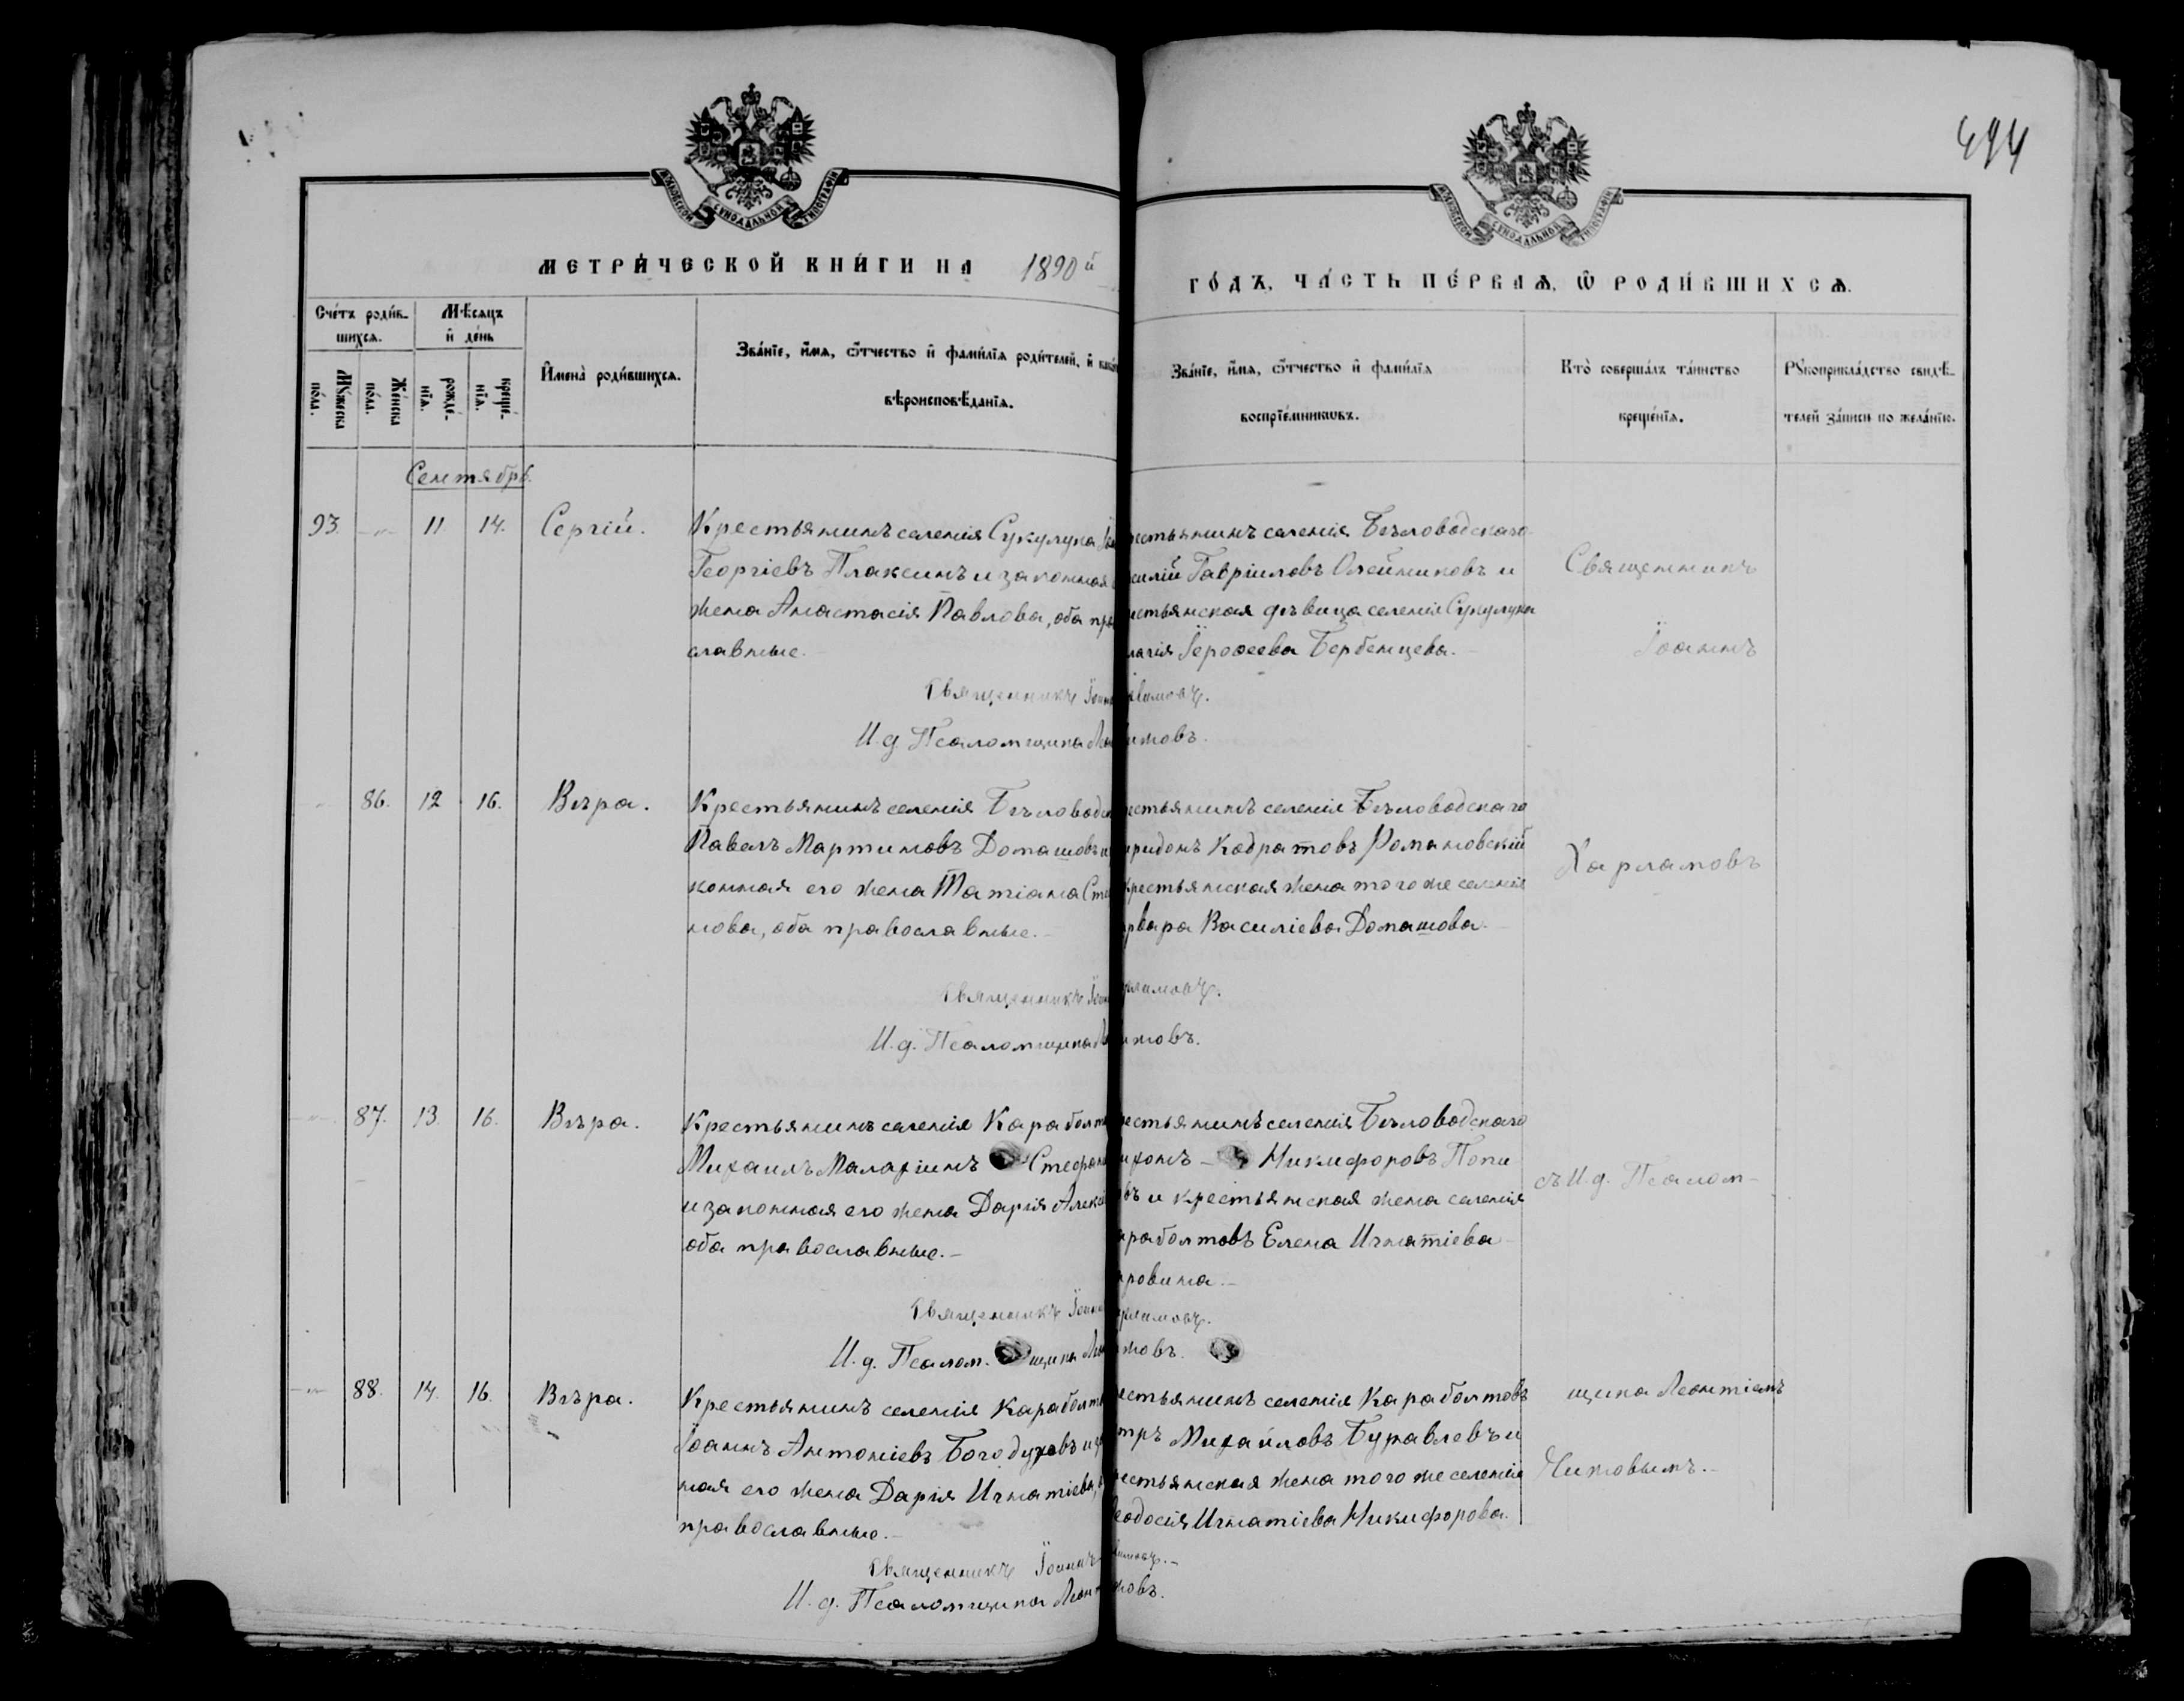 494
МОСКОВСКОЙ СѴНОДАЛЬНОЙ ТИПОГРАФІИ
МОСКОВСКОЙ СѴНОДАЛЬНОЙ ТИПОГРАФІИ
МЕТРИ́ЧЕСКОЙ КНИ́ГИ НА 1890й
ГО́ДЪ, ЧА́СТЬ ПЕ́РВАѦ, Ѡ҆ РОДИ́ВШИХСѦ.
Сче́тъ роди́в-
шихсѧ.
Мꙋ́жеска по́ла.
Же́нска по́ла.
Мѣ́сѧцъ
и҆ де́нь
рожде́-
нїѧ.
креще́-
нїѧ.
И҆мена̀ роди́вшихсѧ.
Зва́нїе, и҆́мѧ, ѻ҆́тчество и҆ фами́лїѧ роди́телей, и҆
вѣроисповѣ́данїѧ.
Зва́нїе, и҆́мѧ, ѻ҆́тчество и҆ фами́лїѧ
воспрїе́мникѡвъ.
Кто̀ соверша́лъ та́инство
креще́нїѧ.
Рꙋкоприкла́дство свидѣ́-
телей за́писи по жела́нїю.
Сентябрь
93. —"— 11. 14. Сергій.
Крестьянинъ селенія Сукулука
Георгіевъ Плаксинъ и законная
жена Анастасія Павлова, оба пра
славные.—
Священникъ Іоанн
И. д. Псаломщика Ле
естьянинъ селенія Бѣловодскаго
силій Гавріиловъ Олейниковъ и
стьянская дѣвица селенія Сукулука
лагія Іероѳеева Бербенцева.—
ламовъ.
итовъ.
Священникъ
Іоаннъ
" 86. 12. 16. Вѣра.
Крестьянинъ селенія Бѣловодск
Павелъ Мартиновъ Домашовъ и
конная его жена Татіана Сте
нова, оба православные.—
Священникъ Іоан
И. д. Псаломщика Л
естьянинъ селенія Бѣловодскаго
иридонъ Кодратовъ Романовскій
крестьянская жена того же селенія
рвара Василіева Домашова.—
рламовъ.
итовъ.
Харламовъ
—"— 87. 13. 16. Вѣра.
Крестьянинъ селенія Караболт
Михаилъ Малахіинъ Стефан
и законная его жена Дарія Алекс
оба православные.—
Священникъ Іоанн
И. д. Псалом. щика Ле
естьянинъ селенія Бѣловодскаго
ихонъ — Никифоровъ Попи
въ и крестьянская жена селенія
араболтовъ Елена Игнатіева
ровина.—
рламовъ.
товъ.
съ И. д. Псалом-
—"— 88. 14. 16. Вѣра.
Крестьянинъ селенія Караболт
Іоаннъ Антоніевъ Богодуховъ и за
ная его жена Дарія Игнатіева,
православные.—
Священникъ Іоаннъ
И. д. Псаломщика Леон
естьянинъ селенія Караболтовъ
тръ Михайловъ Буравлевъ и
естьянская жена того же селенія
еодосія Игнатіева Никифорова.
ламовъ.—
товъ.
щика Леонтіемъ
Читовымъ.—